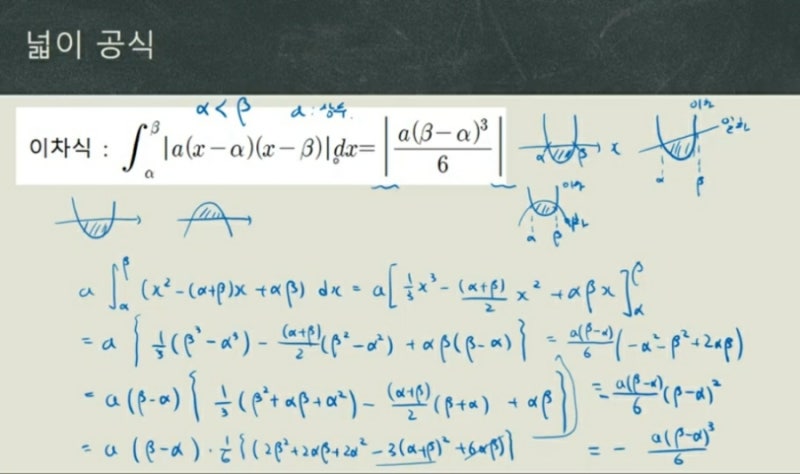 넓이 공식
α < β    a : 상수.
이차식 : ∫_α^β |a(x−α)(x−β)|dx = |a(β−α)³/6|
α β x
이차
α β
이차
α β
a ∫_α^β (x² − (α+β)x + αβ) dx = a[⅓x³ − (α+β)/2 x² + αβx]_α^β
= a { ⅓(β³−α³) − (α+β)/2 (β²−α²) + αβ(β−α) } = a(β−α)/6 (−α²−β²+2αβ)
= a(β−α) { ⅓(β²+αβ+α²) − (α+β)/2 (β+α) + αβ } = − a(β−α)/6 (β−α)²
= a (β−α) · ⅙ {(2β²+2αβ+2α² − 3(α+β)² + 6αβ)} = − a(β−α)³/6